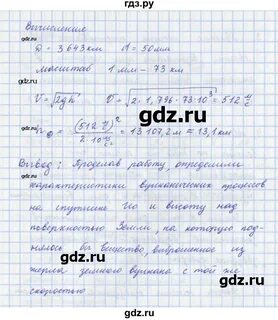 гдз.ру
Вычисления
D = 3643 км d = 50 мм
Масштаб 1 мм – 73 км
V = √2gh V = √2·1,796·73·10³ = 512 м/с
h⊕ = (512 м/с)² / 2·10 м/с² = 13107,2 м ≈ 13,1 км
Вывод: Проделав работу, определили
характеристики вулканических процессов
на спутнике Ио и высоту над
поверхностью Земли, на которую под-
нялось бы вещество, выброшенное из
жерла земного вулкана с той же
скоростью
гдз.ру